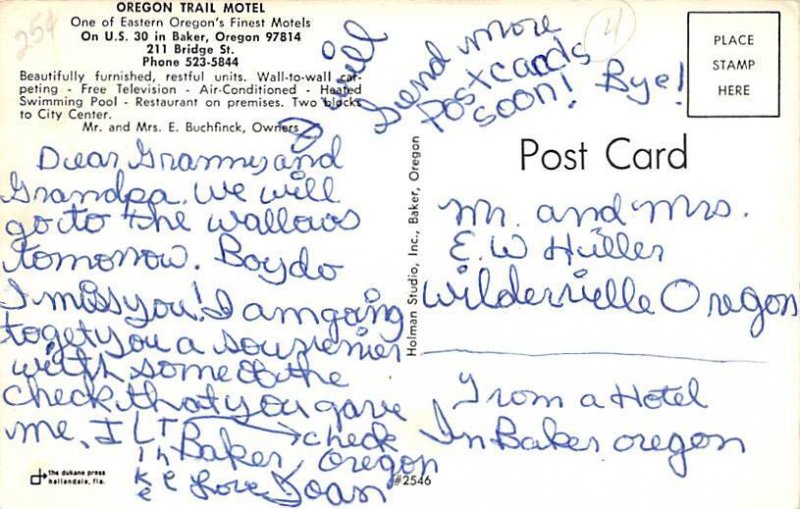 OREGON TRAIL MOTEL
One of Eastern Oregon's Finest Motels
On U.S. 30 in Baker, Oregon 97814
211 Bridge St.
Phone 523-5844
Beautifully furnished, restful units. Wall-to-wall car-
peting - Free Television - Air-Conditioned - Heated
Swimming Pool - Restaurant on premises. Two blocks
to City Center.
Mr. and Mrs. E. Buchfinck, Owners
25¢
4
Dear Granny and
Grandpa. We will
go to the wallows
tomorrow. Boy do
I miss you! I am going
to get you a souvenier
with some of the
check that you gave
me. I Like The check
In Baker, Oregon
Love Joan
I will
Send more
Postcards
soon! Bye!
PLACE
STAMP
HERE
Post Card
Holman Studio, Inc., Baker, Oregon
Mr. and Mrs.
E. W Hüller
Wilderville Oregon
From a Hotel
In Baker oregon
the dukane press
hallandale, fla.
#2546